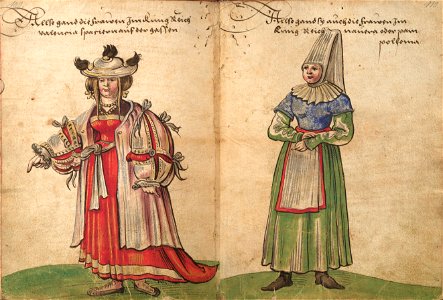 Allso gand die frawen Im Kung Reich
valencia spaciern auf der gassen
Allso gand sy auch die frawen Im
Kung Reich navera oder pam
polonia